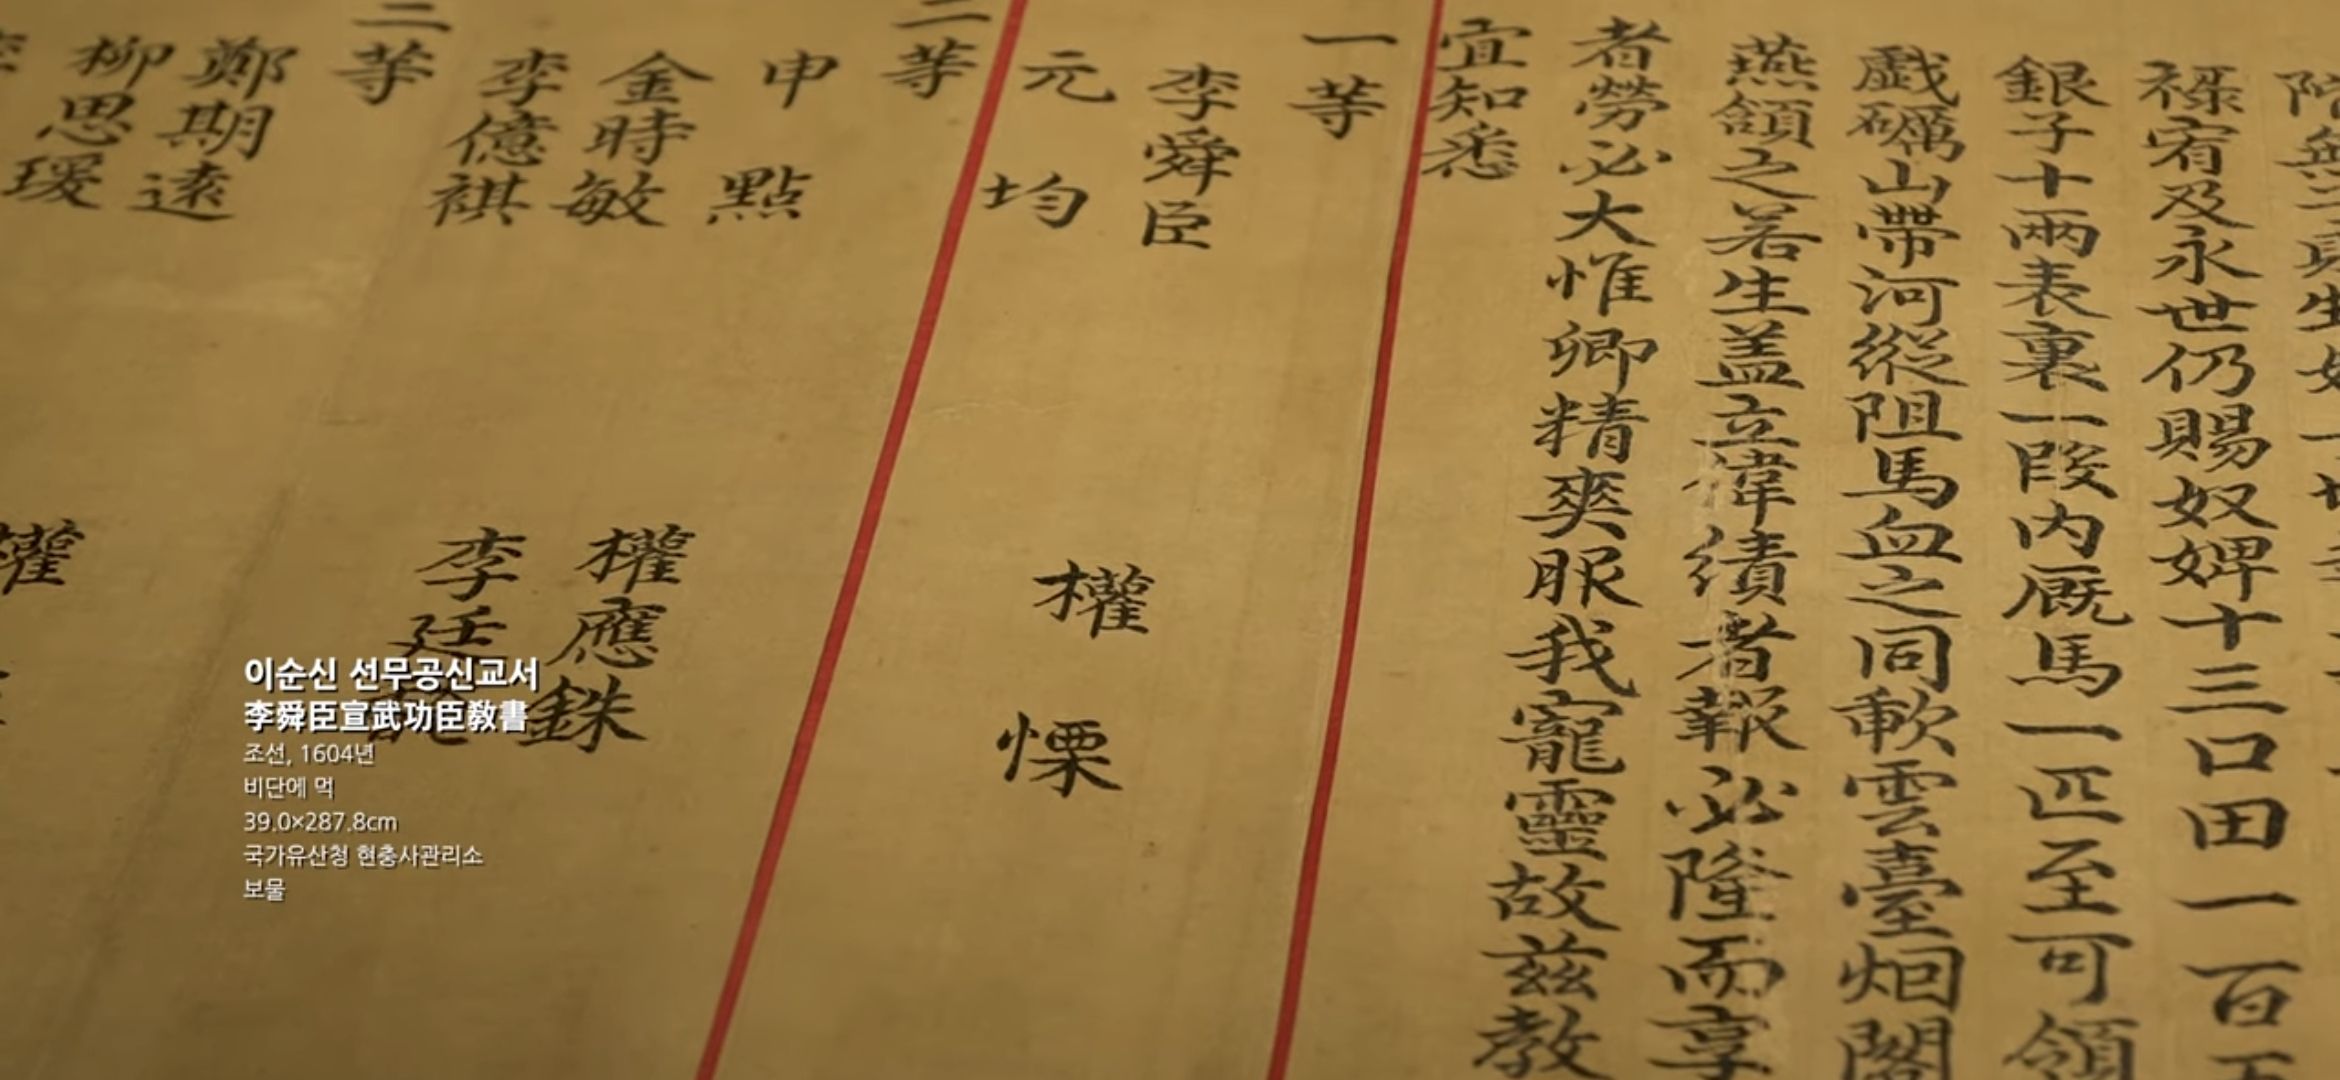 祿宥及永世仍賜奴婢十三口田一百
銀子十兩表裏一段内厩馬一匹至可領
戯礪山帶河縱阻馬血之同軟雲臺烱閣
燕頷之若生盖立偉績者報必隆而享
者勞必大惟卿精爽服我寵靈故玆教
宜知悉
一等
李舜臣 權慄
元均
二等
申點 權應銖
金時敏 李廷
李億祺
三等
鄭期遠 權
柳思瑗
이순신 선무공신교서
李舜臣宣武功臣敎書
조선, 1604년
비단에 먹
39.0×287.8cm
국가유산청 현충사관리소
보물